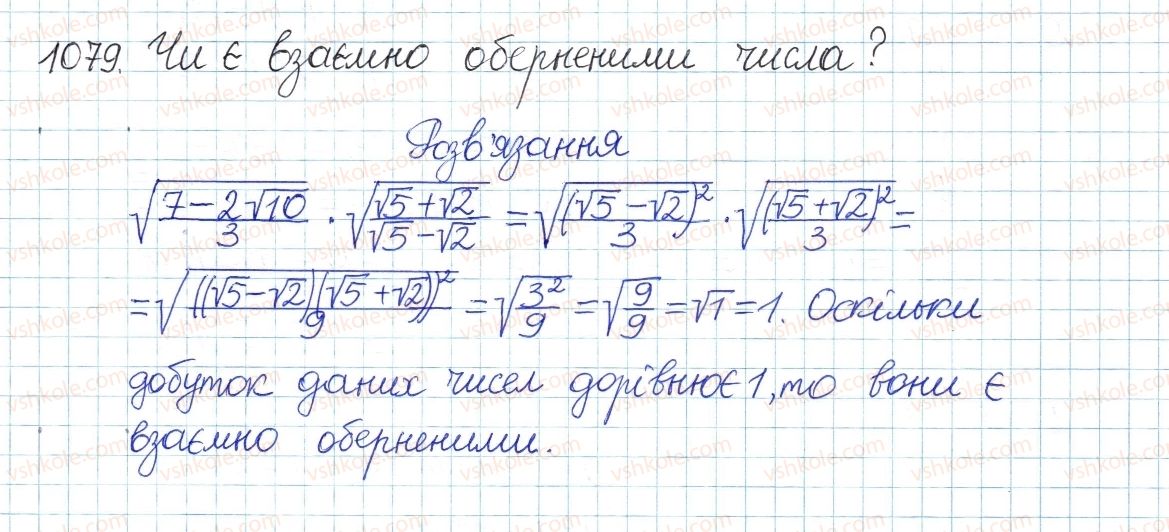 1079. Чи є взаємно оберненими числа?
Розв'язання
√((7-2√10)/3) · √((√5+√2)/(√5-√2)) = √((√5-√2)²/3) · √((√5+√2)²/3) =
= √(((√5-√2)(√5+√2))²/9) = √(3²/9) = √(9/9) = √1 = 1. Оскільки
добуток даних чисел дорівнює 1, то вони є
взаємно оберненими.